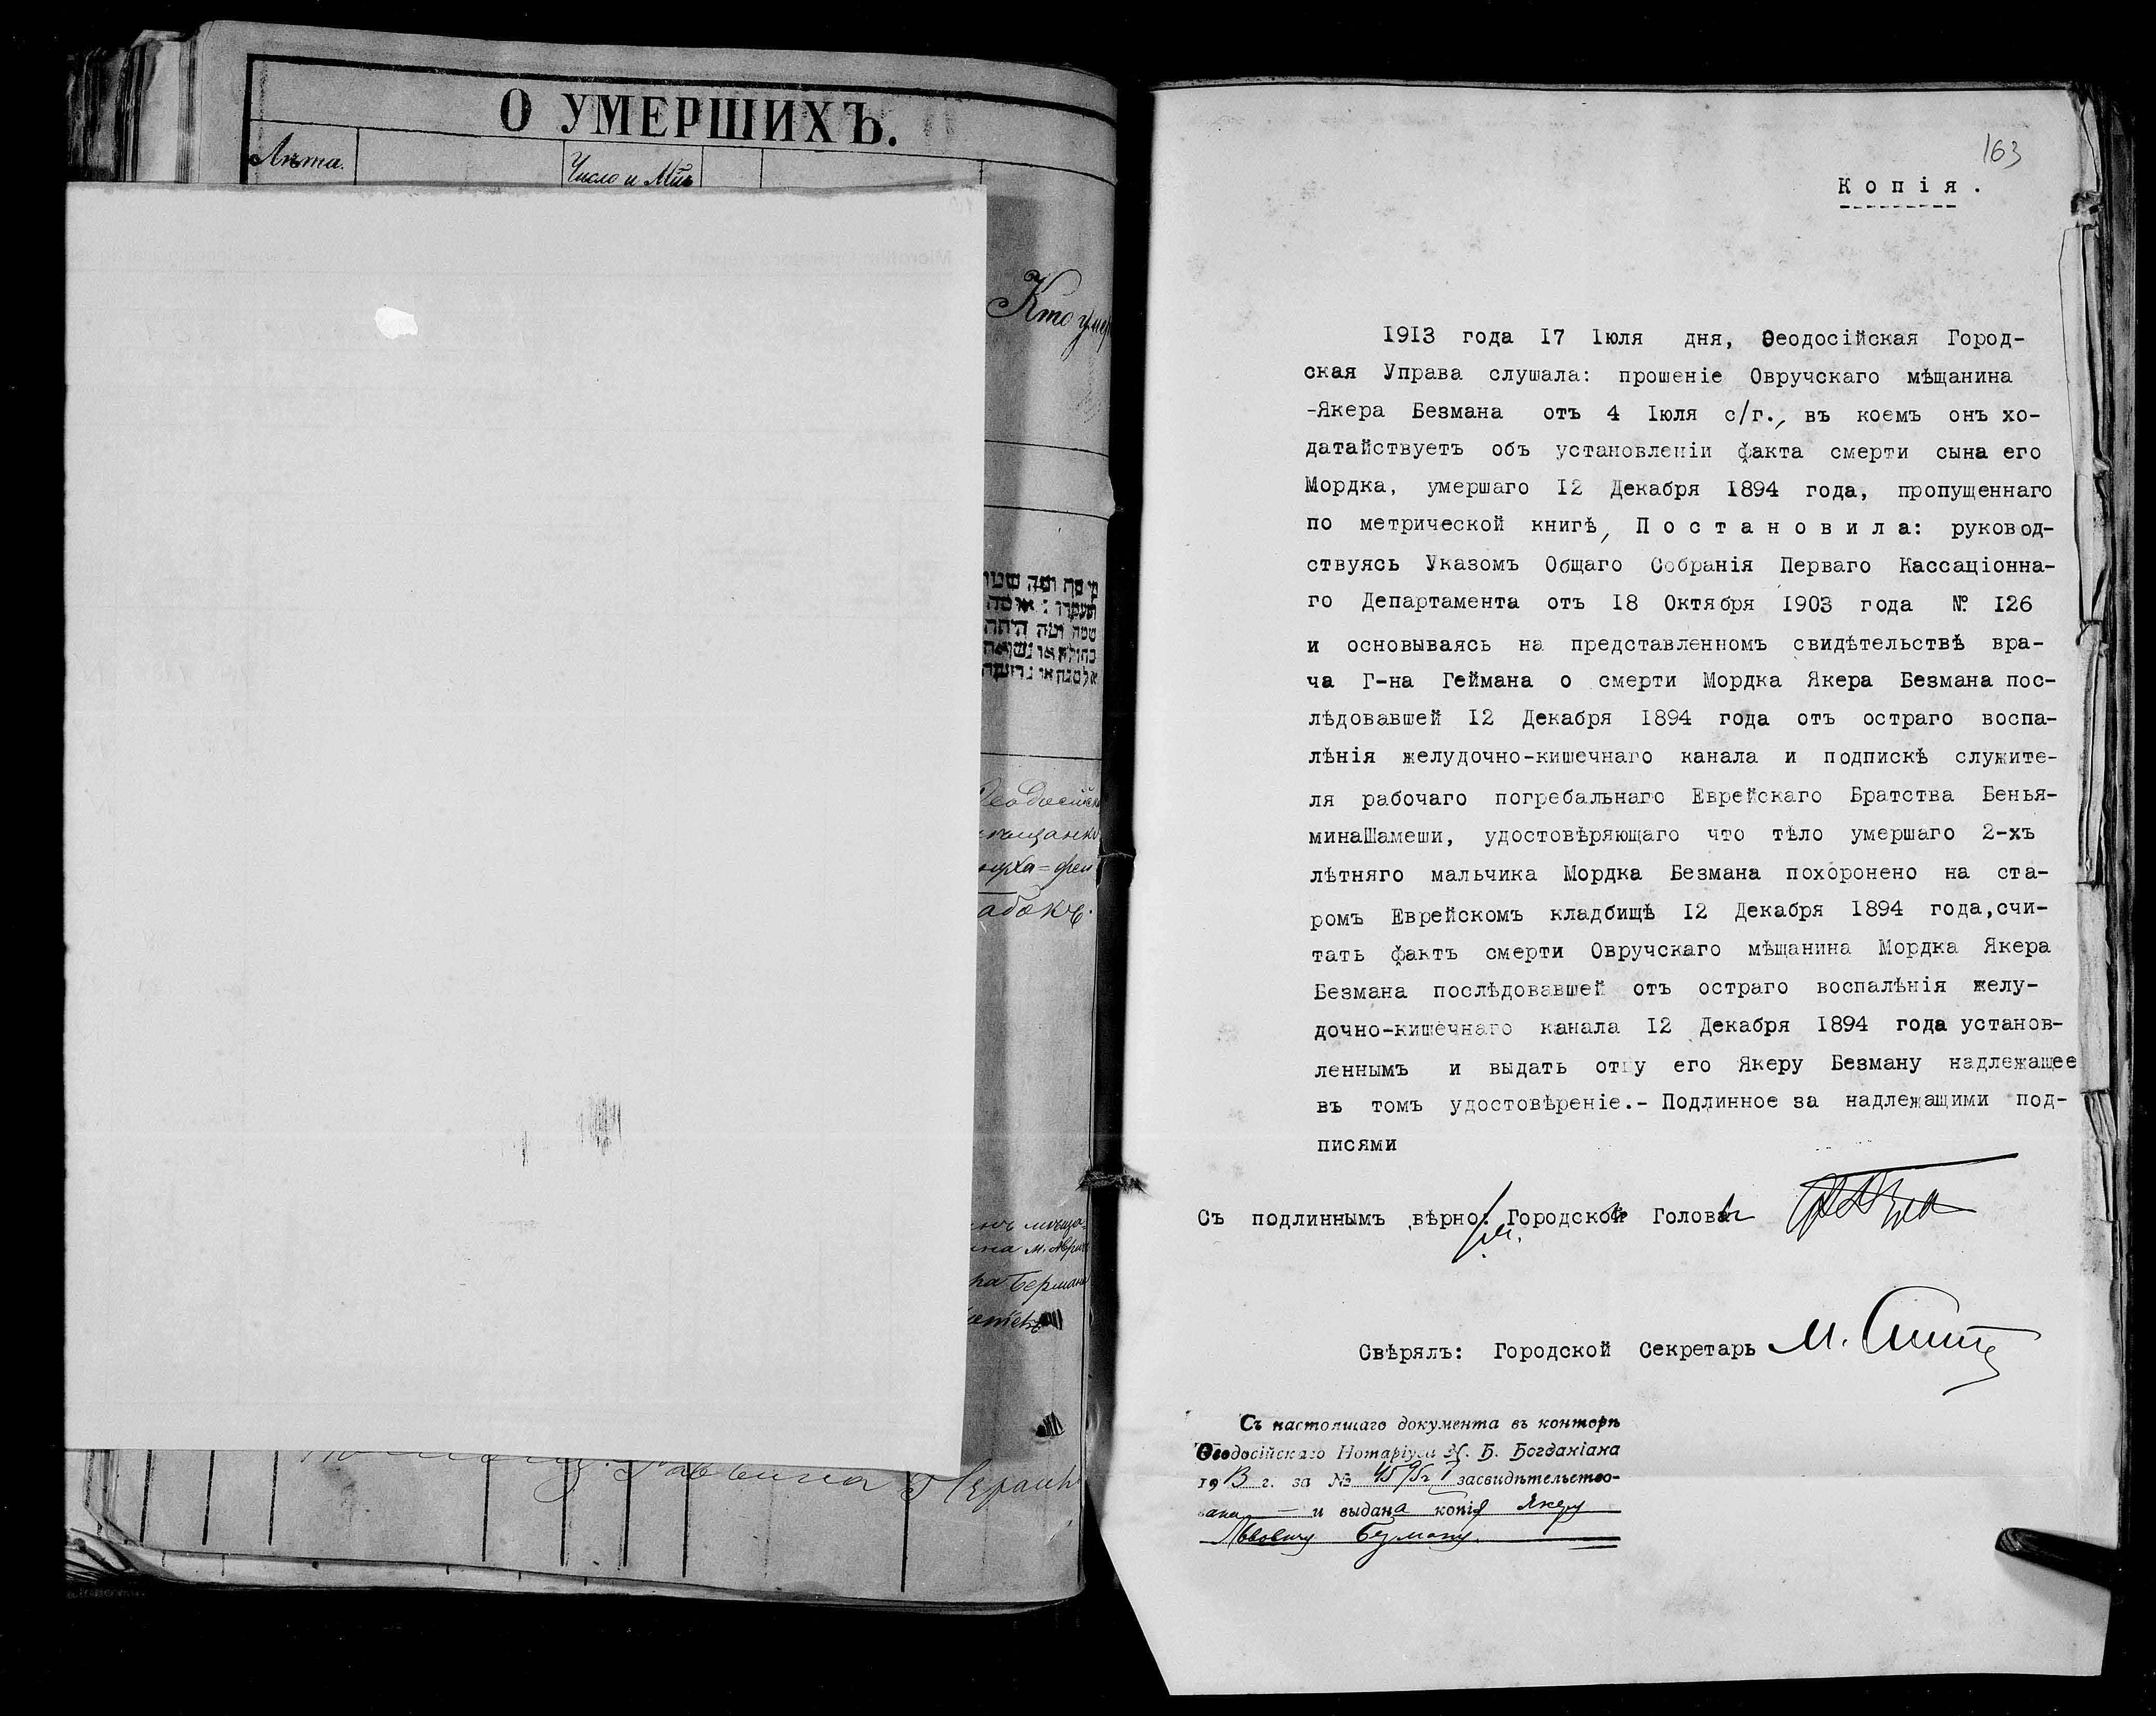 О УМЕРШИХЪ.
Лѣта.
Число и
Кто умер
Ѳеодосійск
абокъ.
163
Копія.
1913 года 17 Іюля дня, Ѳеодосійская Город-
ская Управа слушала: прошеніе Овручскаго мѣщанина
-Якера Безмана отъ 4 Іюля с/г., въ коемъ онъ хо-
датайствуетъ объ установленіи факта смерти сына его
Мордка, умершаго 12 Декабря 1894 года, пропущеннаго
по метрической книгѣ, Постановила: руковод-
ствуясь Указомъ Общаго Собранія Перваго Кассаціонна-
го Департамента отъ 18 Октября 1903 года № 126
и основываясь на представленномъ свидѣтельствѣ вра-
ча Г-на Геймана о смерти Мордка Якера Безмана пос-
лѣдовавшей 12 Декабря 1894 года отъ остраго воспа-
лѣнія желудочно-кишечнаго канала и подпискѣ служите-
ля рабочаго погребальнаго Еврейскаго Братства Бенья-
минаШамеши, удостовѣряющаго что тѣло умершаго 2-хъ
лѣтняго мальчика Мордка Безмана похоронено на ста-
ромъ Еврейскомъ кладбищѣ 12 Декабря 1894 года,счи-
тать фактъ смерти Овручскаго мѣщанина Мордка Якера
Безмана послѣдовавшей отъ остраго воспалѣнія желу-
дочно-кишечнаго канала 12 Декабря 1894 года установ-
леннымъ и выдать отцу его Якеру Безману надлежащее
въ томъ удостовѣреніе.- Подлинное за надлежащими под-
писями
Съ подлиннымъ вѣрно: Городской Голова
Свѣрялъ: Городской Секретарь
Съ настоящаго документа въ конторѣ
Ѳеодосійскаго Нотаріуса Х. Б. Богданіана
1913 г. за № засвидѣтельство-
вана и выдана копія Якеру
Львовичу Безману.